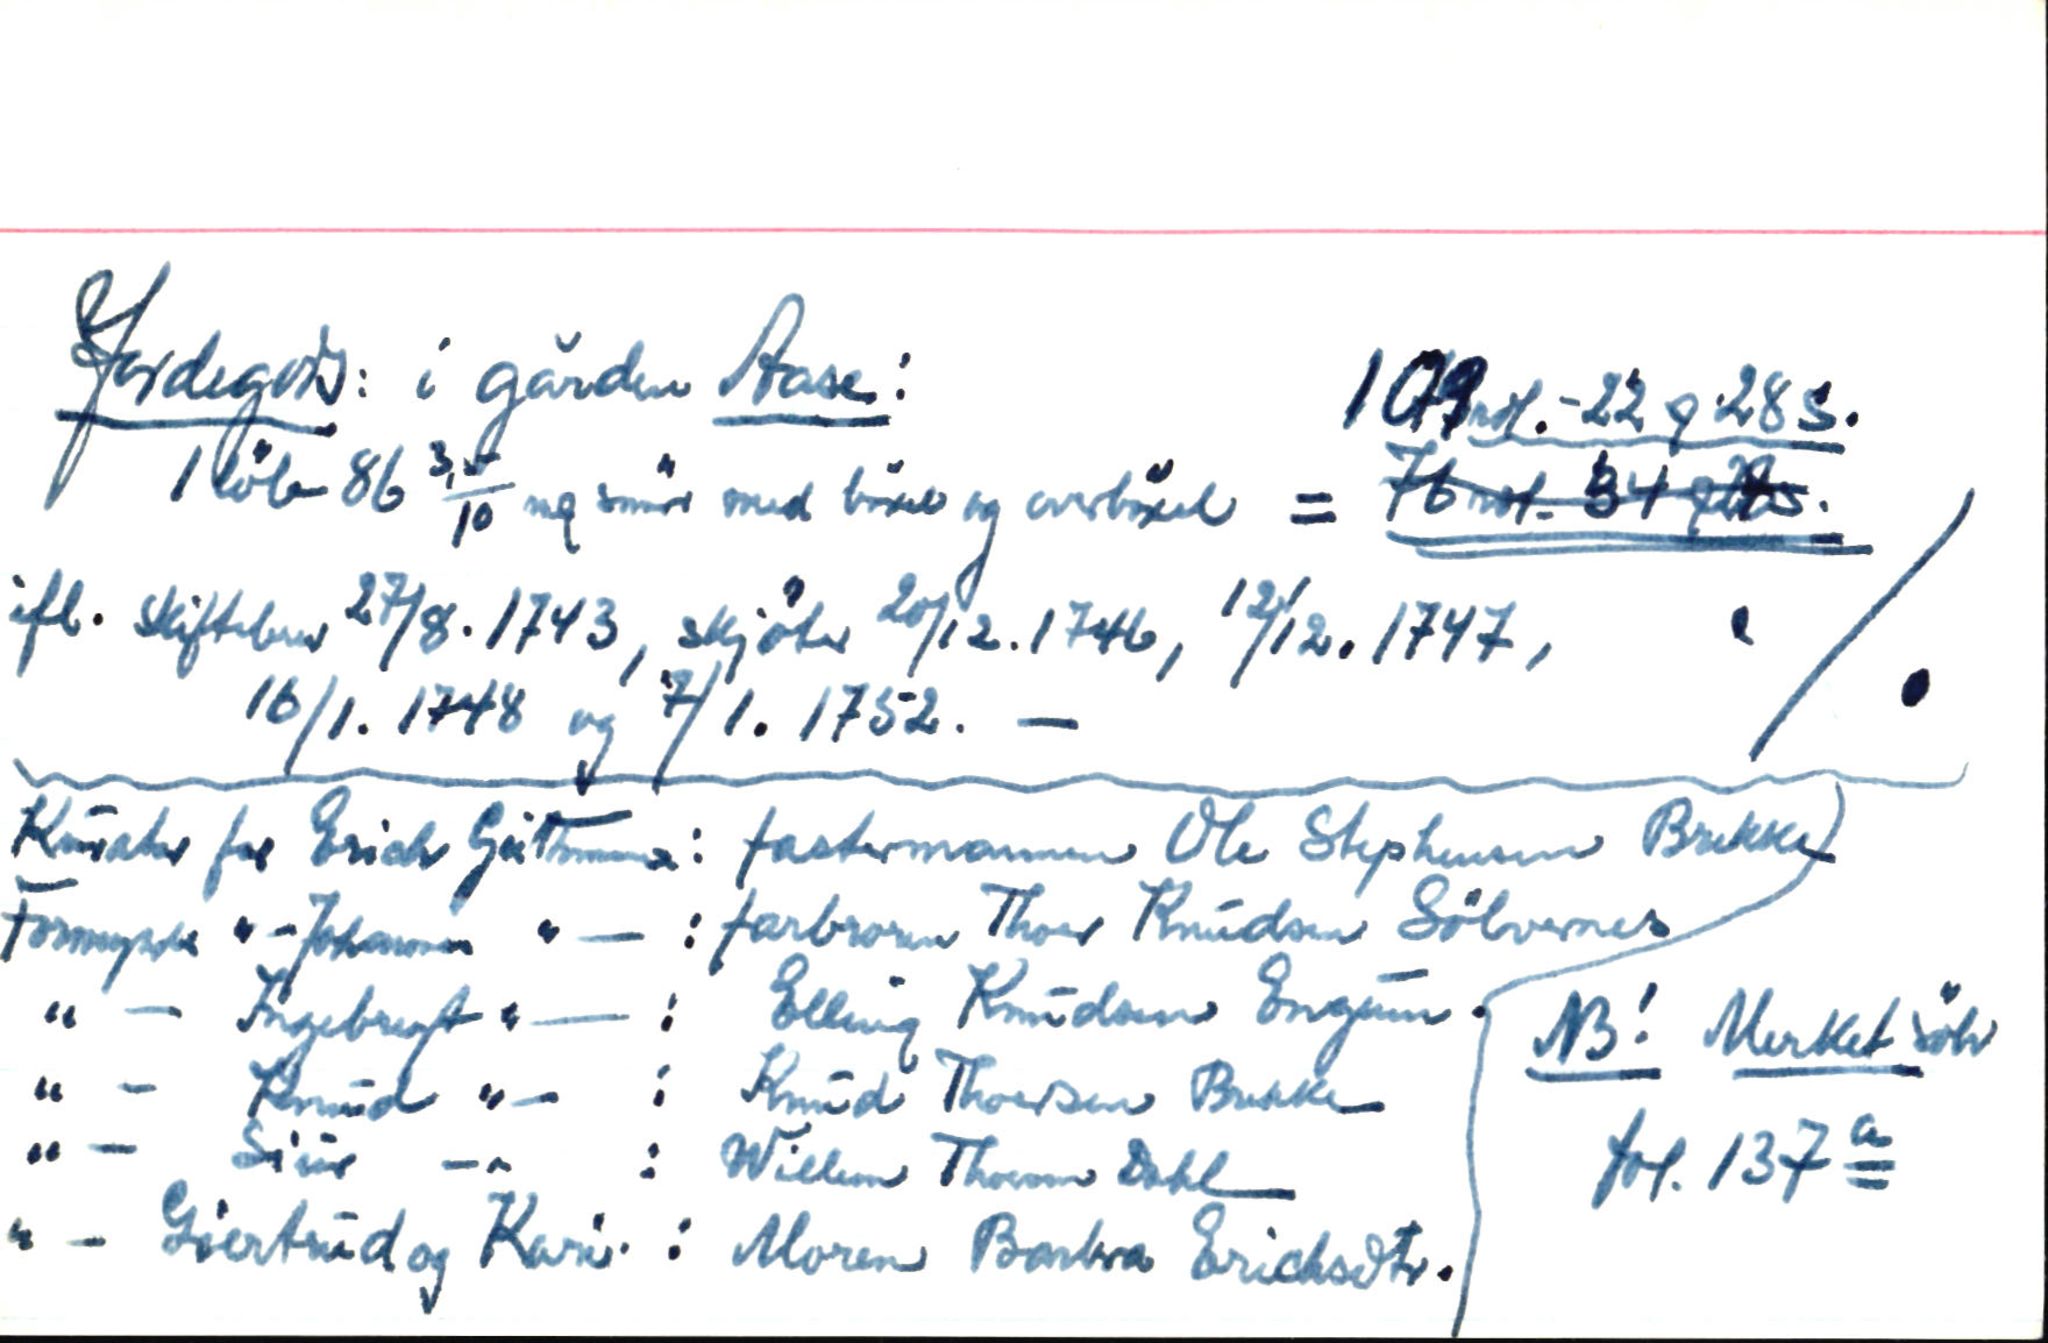 Jordegods: i gården Aase:
109 rdl. - 22 q 28 s.
1 löb 86 3,5/10 mq smör med böxel og overböxel = 76 rdl. 34 s.
ifl. skiftebrev 27/8. 1743, skjöter 20/12. 1746, 12/12. 1747,
16/1. 1748 og 7/1. 1752. —
Kurator for Erich : fastermannen Ole Stephensen Brekke
Formynder " - Johannes " — : farbroren Thoer Knudsen Sölvernes
" — Ingebregt " — : Elling Knudsen Engum.
" — Knud " — : Knud Thoersen Brekke
" — Siur — " : Willem Thorsen Dahl
" — Giertrud og Kari : Moren Barbra Erichsdtr.
NB! Merket sölv
fol. 137 a